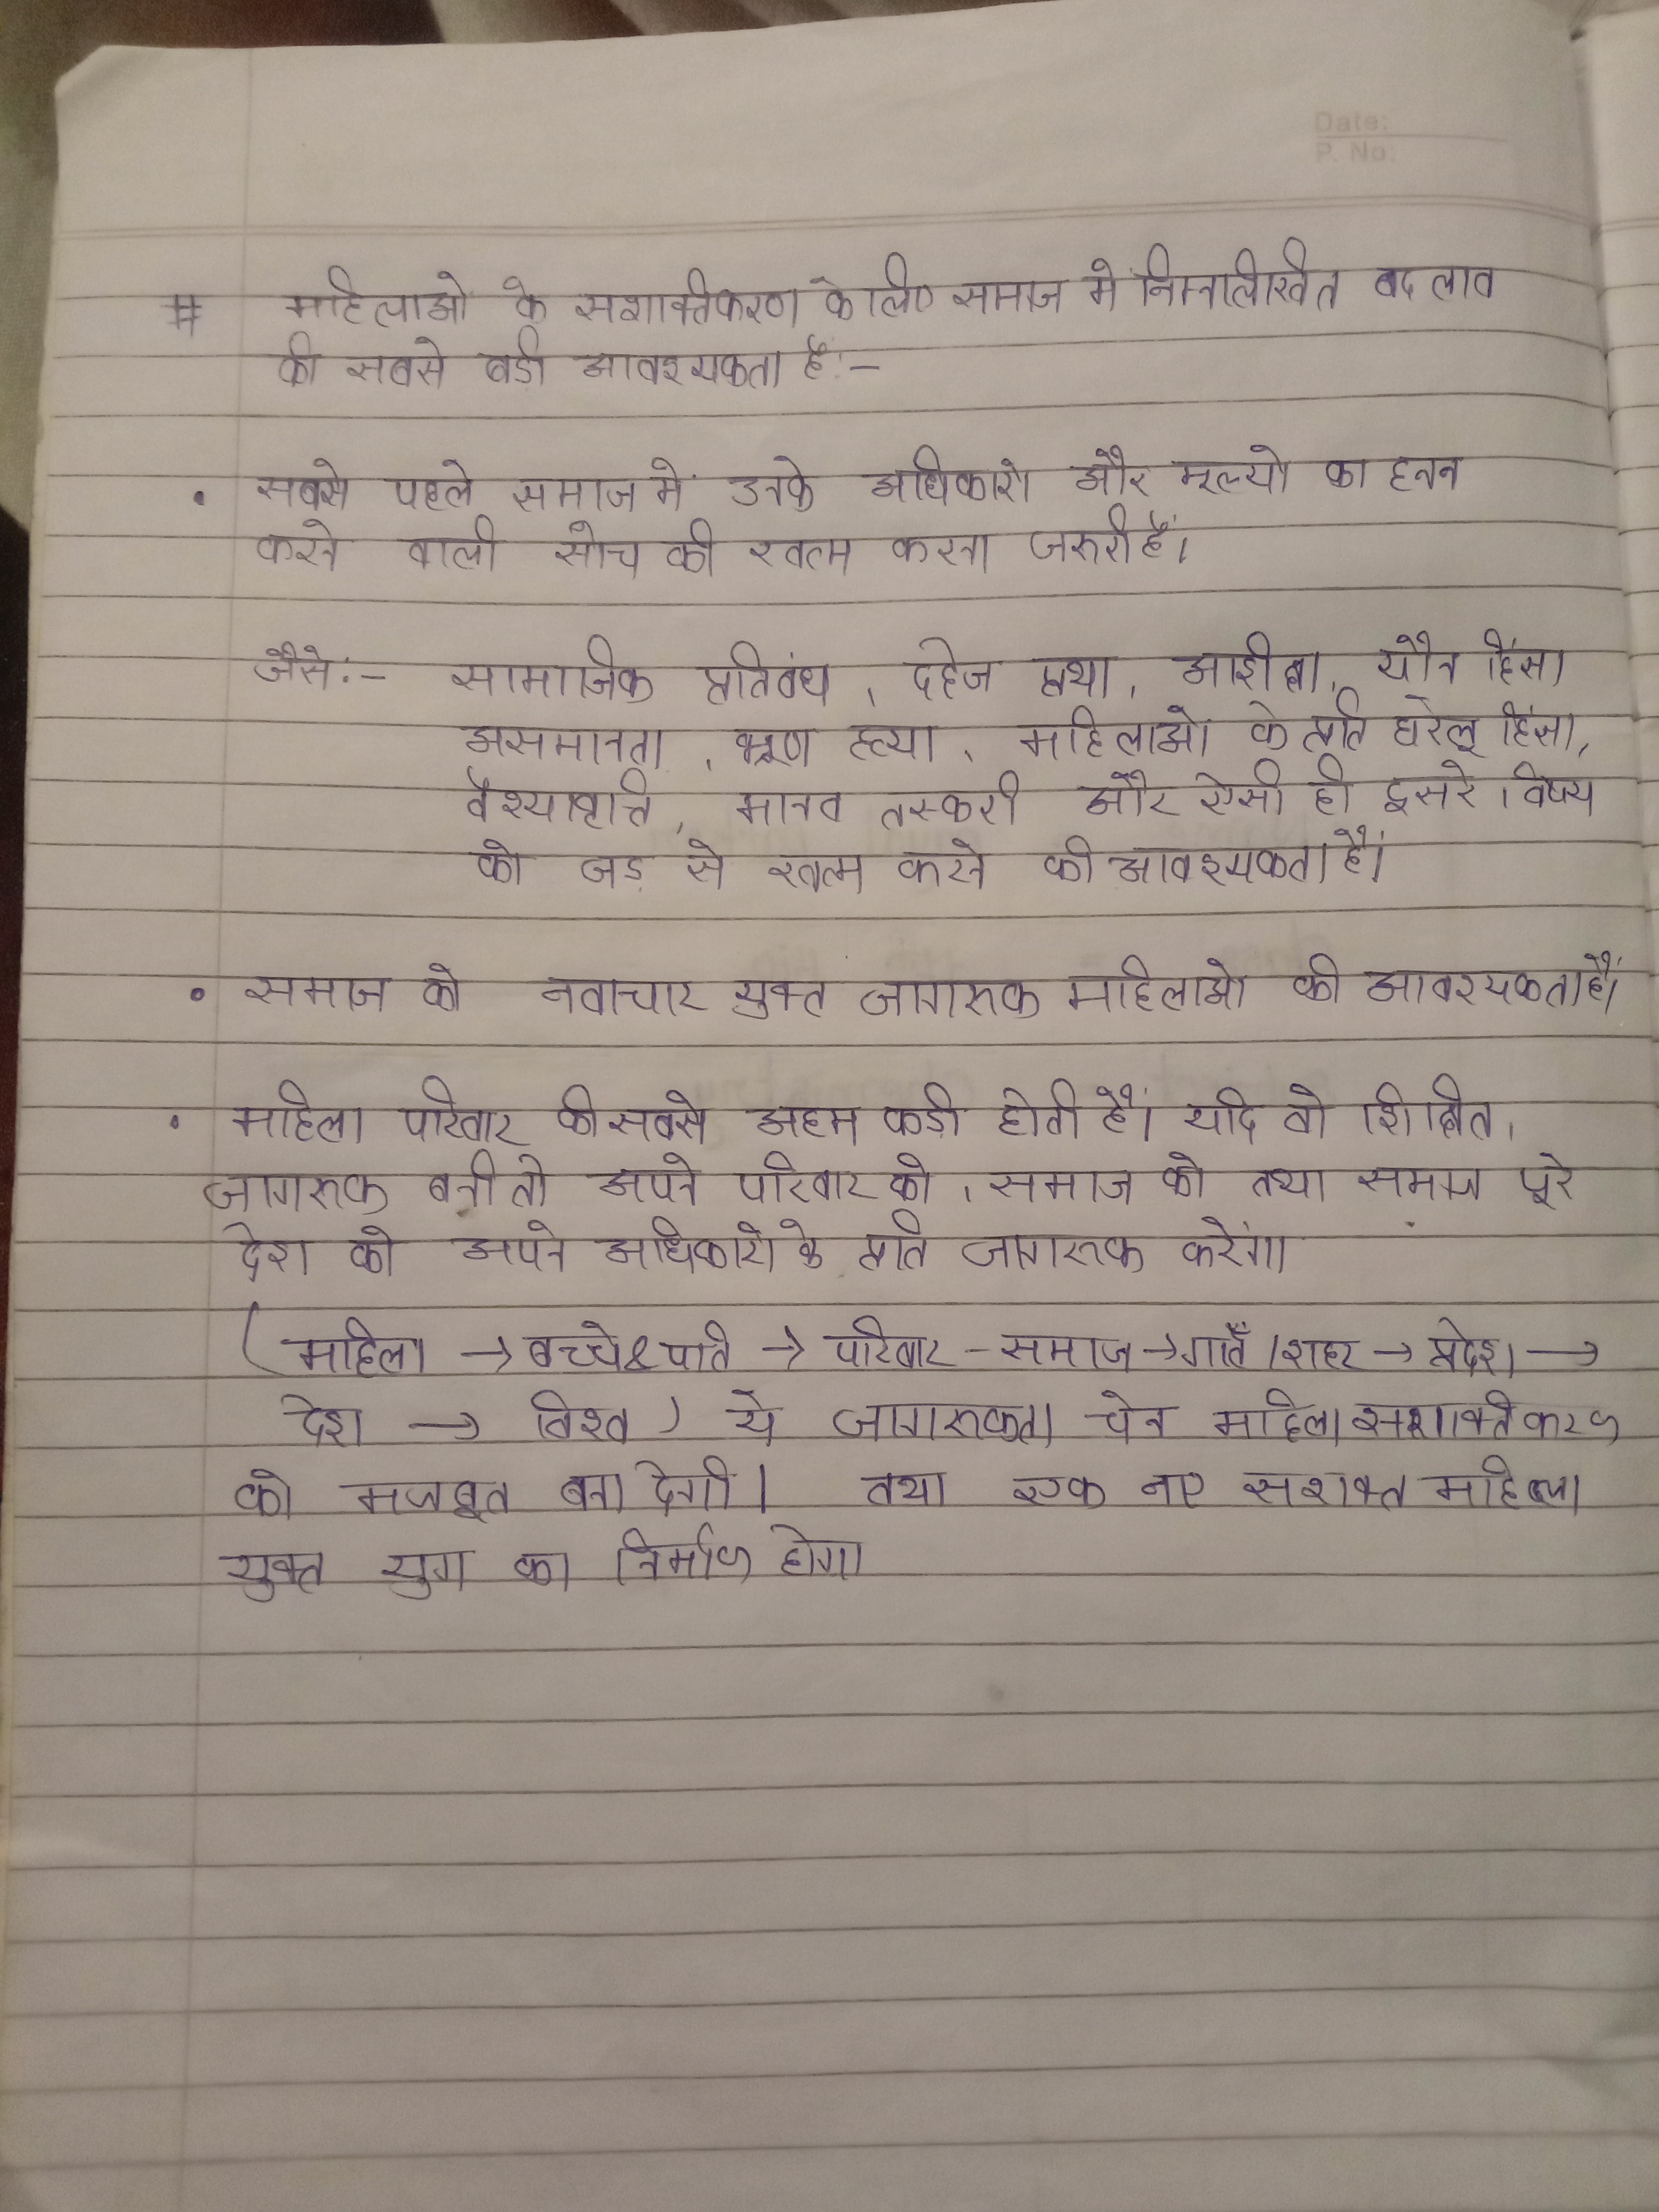 Date:
P. No:
# महिलाओ के सशक्तिकरण के लिए समाज मे निम्नलिखित बदलाव
की सबसे बडी आवश्यकता है:-
• सबसे पहले समाज मे उनके अधिकारो और मूल्यो का हनन
करने वाली सोच की खत्म करना जरूरी है।
जैसे:- सामाजिक प्रतिबंध, दहेज प्रथा, अशिक्षा, यौन हिंसा
असमानता, भ्रूण हत्या, महिलाओ के प्रति घरेलू हिंसा,
वैश्यावृत्ति, मानव तस्करी और ऐसी ही दूसरे विषय
को जड़ से खत्म करने की आवश्यकता है।
• समाज को नवाचार युक्त जागरूक महिलाओ की आवश्यकता है।
• महिला परिवार की सबसे अहम कडी होती है। यदि वो शिक्षित,
जागरूक बनी तो अपने परिवार को, समाज को तथा समाज पूरे
देश को अपने अधिकारो के प्रति जागरूक करेगा
(महिला → बच्चे & पति → परिवार - समाज → गाँव / शहर → प्रदेश →
देश → विश्व) ये जागरूकता चेन महिला सशक्तिकरण
को मजबूत बना देगी। तथा एक नए सशक्त महिला
युक्त युग का निर्माण होगा